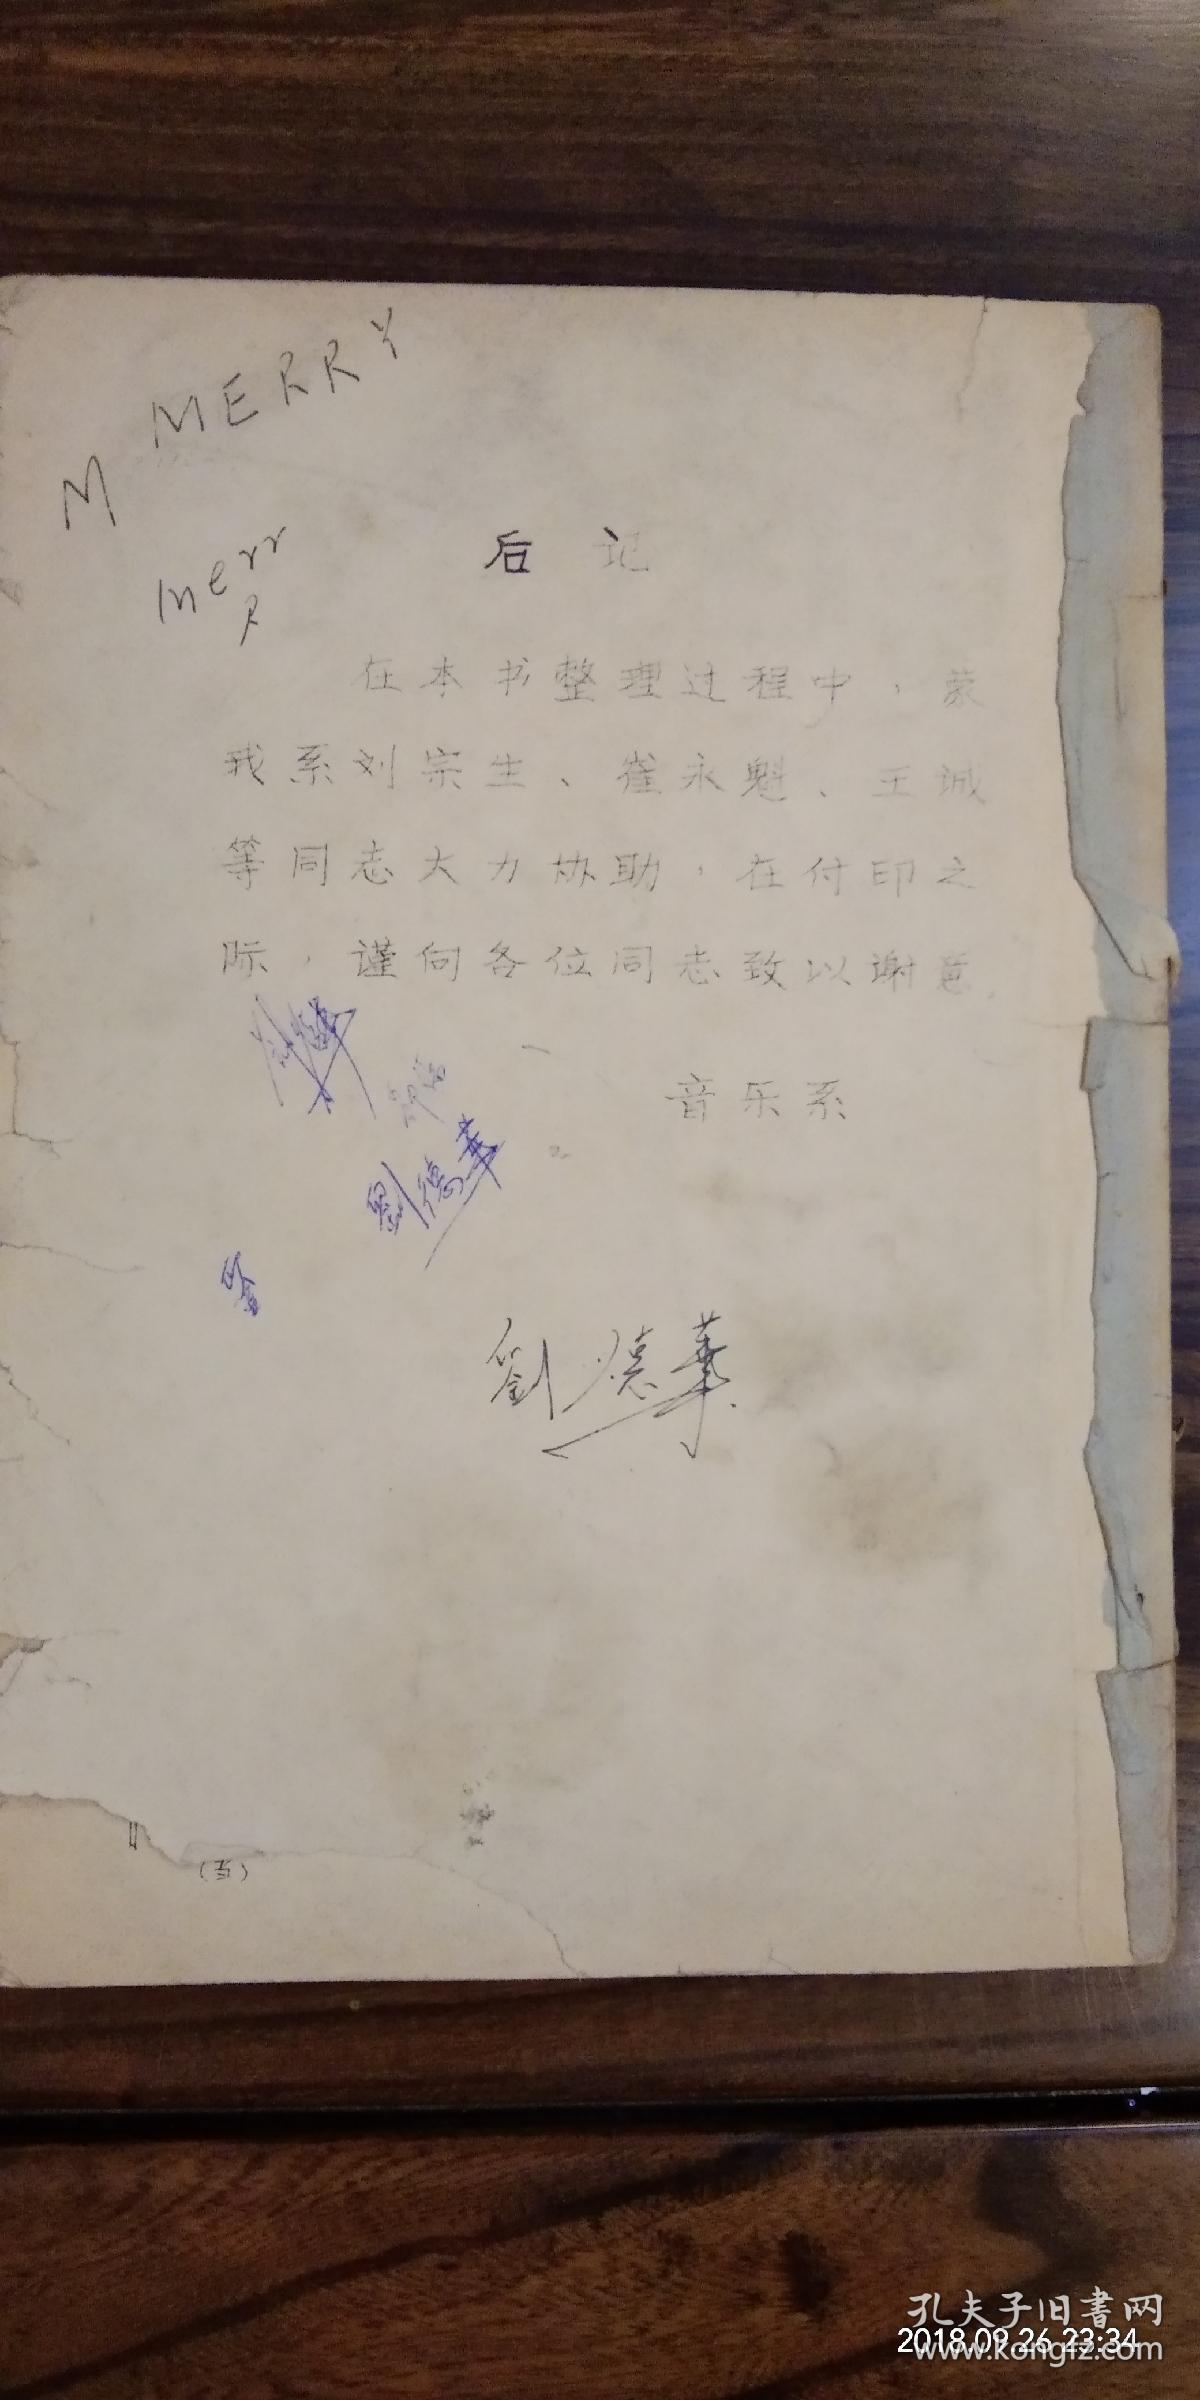 MERRY
M
merr
R
后记
在本书整理过程中，蒙
我系刘宗生、崔永魁、王诚
等同志大力协助，在付印之
际，谨向各位同志致以谢意。
音乐系
劉德華
劉德華
孔夫子旧書网
2018.09.26 23:34
www.kongfz.com